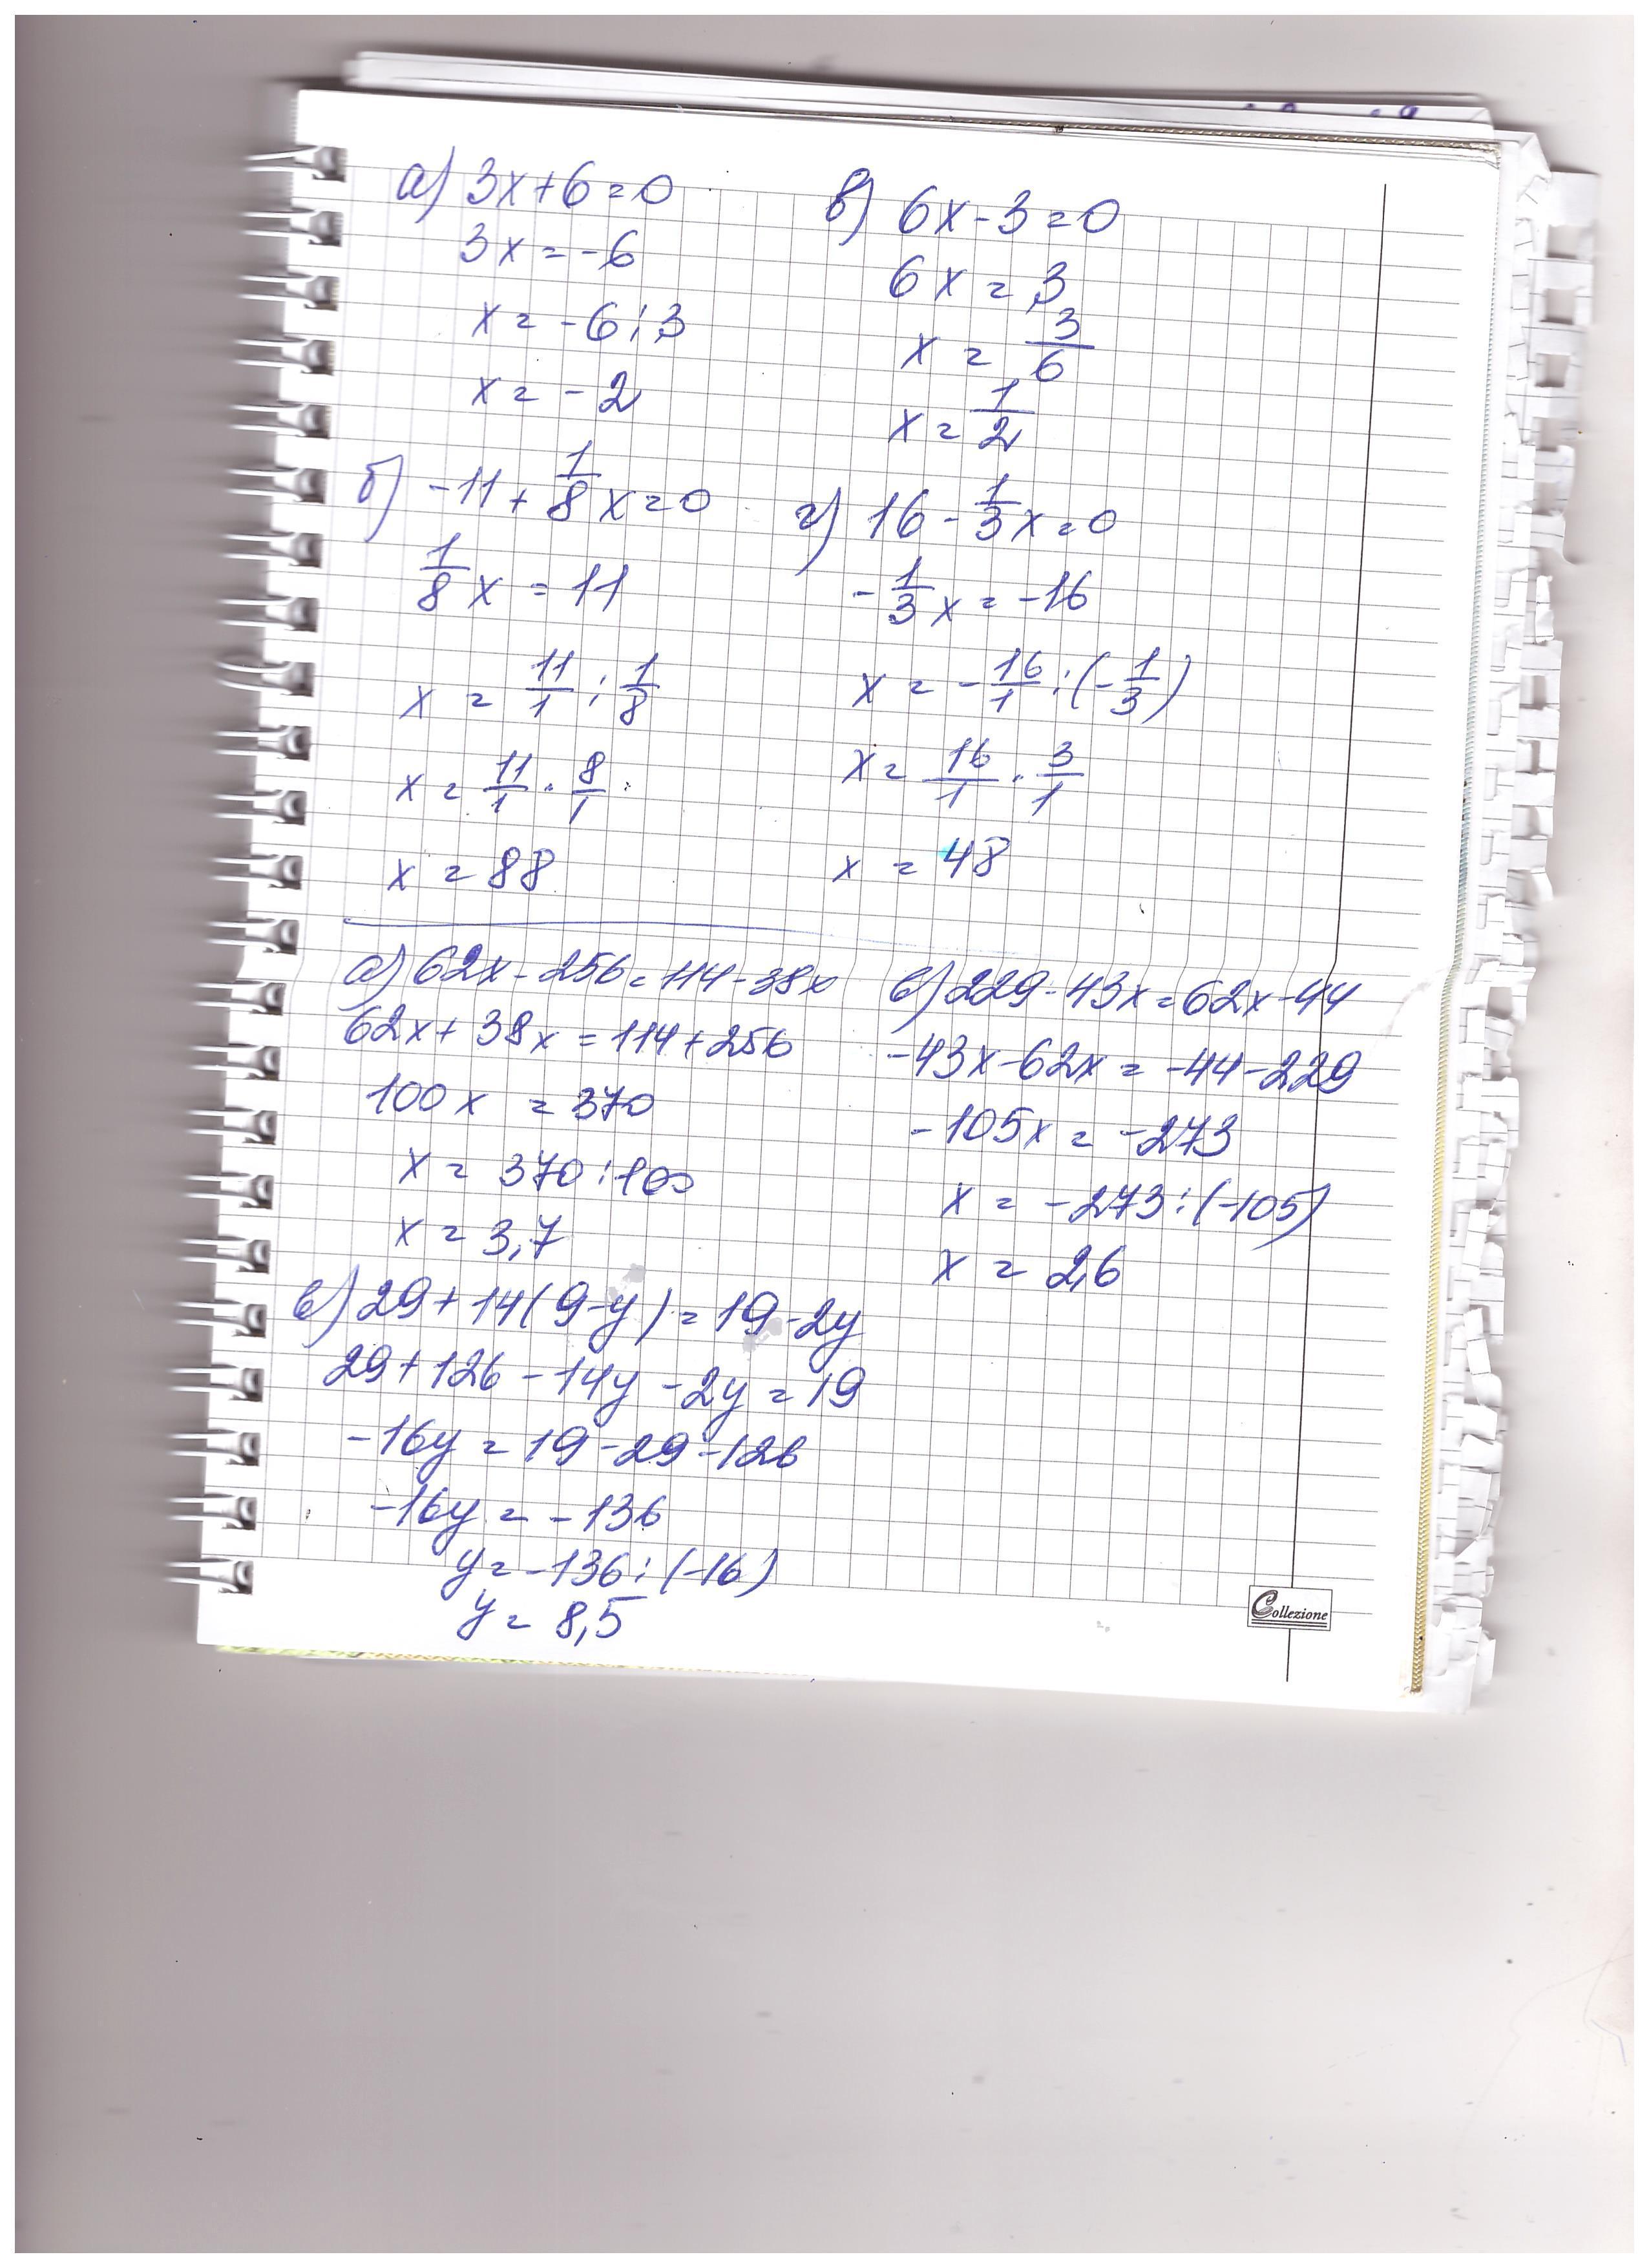 а) 3x+6=0
3x=-6
x=-6:3
x=-2
в) 6x-3=0
6x=3
x=3/6
x=1/2
б) -11+1/8x=0
1/8x=11
x=11/1:1/8
x=11/1·8/1
x=88
г) 16-1/3x=0
-1/3x=-16
x=-16/1:(-1/3)
x=16/1·3/1
x=48
а) 62x-256=114-38x
62x+38x=114+256
100x=370
x=370:100
x=3,7
в) 229-43x=62x-44
-43x-62x=-44-229
-105x=-273
x=-273:(-105)
x=2,6
в) 29+14(9-y)=19-2y
29+126-14y-2y=19
-16y=19-29-126
-16y=-136
y=-136:(-16)
y=8,5
Collezione